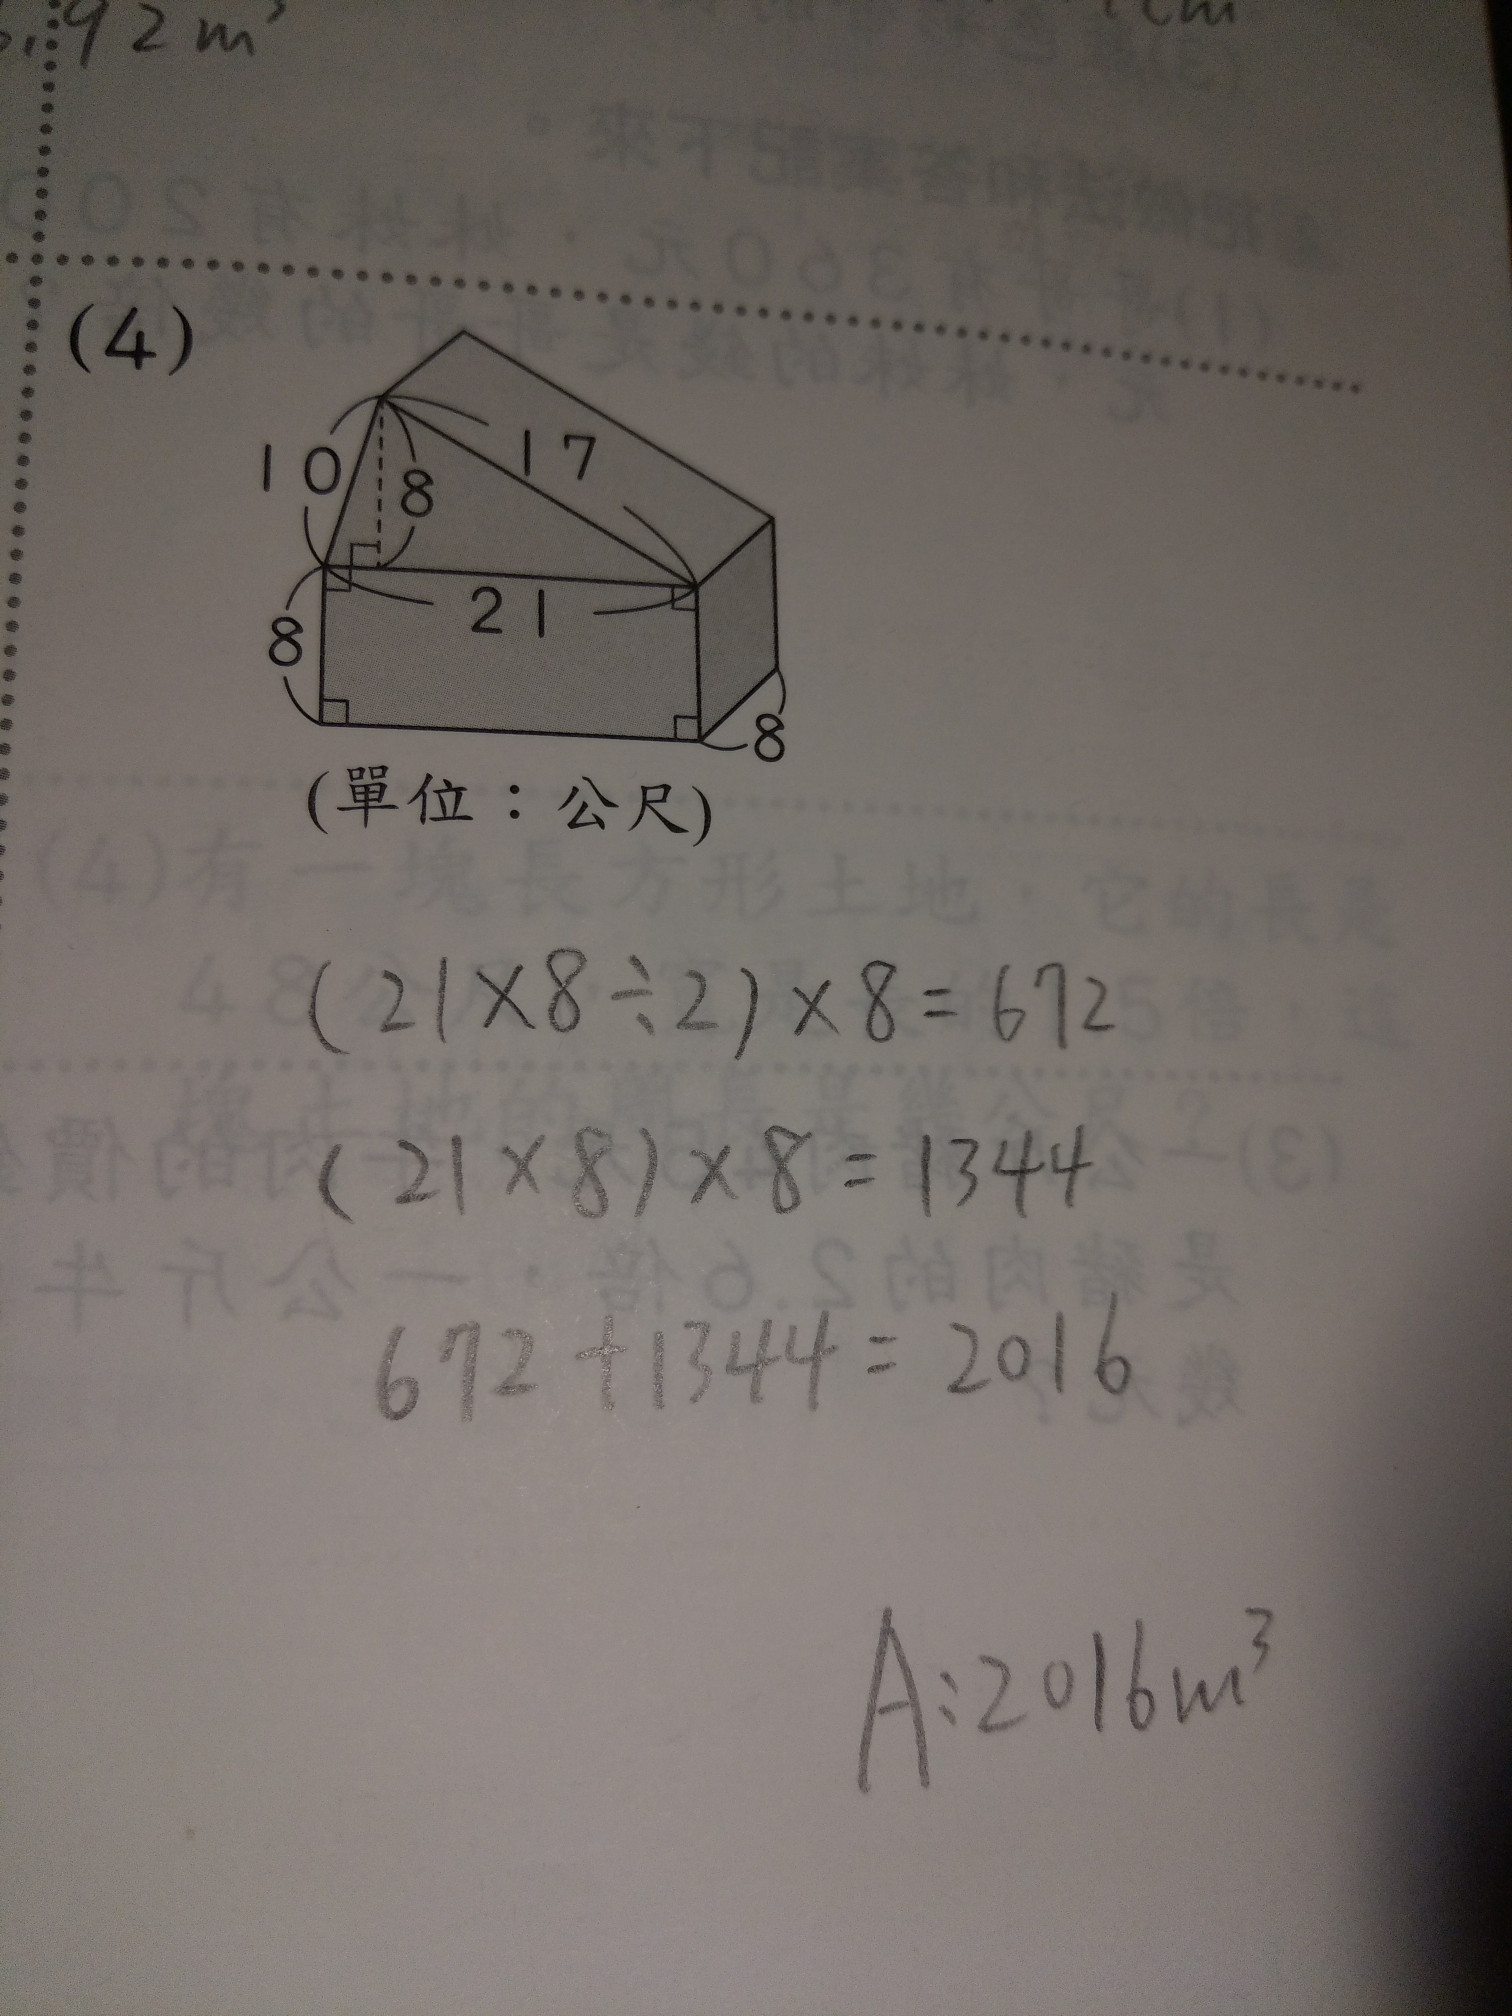 92m³
cm
(4)
10
17
8
21
8
8
(單位：公尺)
(21×8÷2)×8=672
(21×8)×8=1344
672+1344=2016
A:2016m³